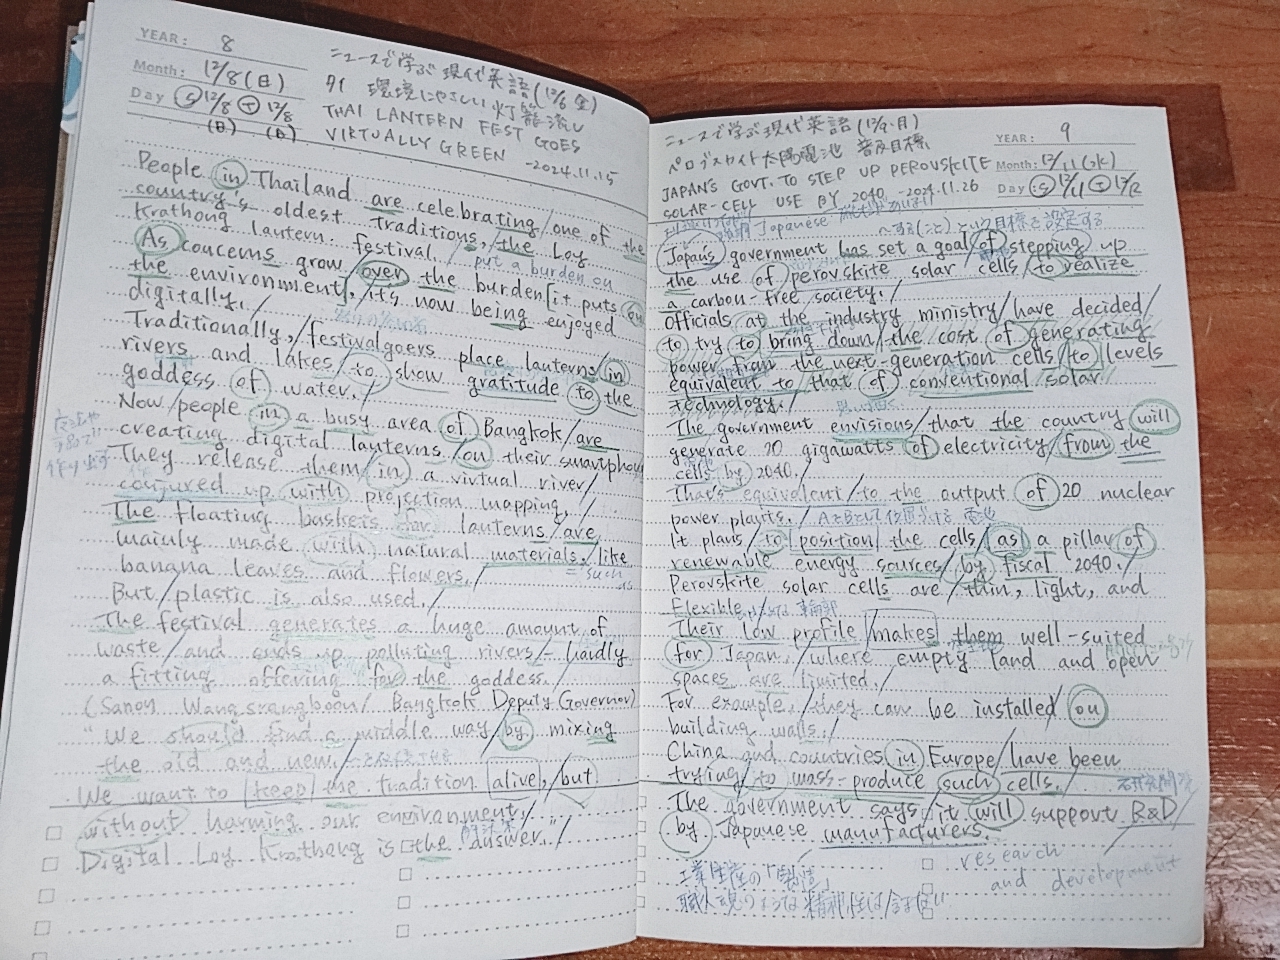 YEAR: 8
Month: 12/8(日)
Day
ニュースで学ぶ現代英語(12/6 金)
タイ 環境にやさしい灯籠流し
THAI LANTERN FEST GOES
VIRTUALLY GREEN -2024.11.15
People in Thailand are celebrating/one of the
country's oldest traditions, the Loy
Krathong lantern festival./
put a burden on
As concerns grow over the burden[it puts on
the environment], it's now being enjoyed
digitally./
Traditionally,/festivalgoers place lanterns/in
rivers and lakes/to show gratitude to the
goddess of water./
Now/people in a busy area of Bangkok/are
creating digital lanterns/on their smartphones
They release them/in a virtual river/
conjured up with projection mapping./
The floating baskets for lanterns/are
mainly made with natural materials,/like
such
banana leaves and flowers./
But/plastic is also used./
The festival generates a huge amount of
waste/and ends up polluting rivers/-hardly
a fitting offering for the goddess./
(Sanon Wangsrangboon/Bangkok Deputy Governor)
"We should find a middle way/by mixing
the old and new./
We want to keep the tradition alive,/but
without harming our environment./
Digital Loy Krathong is the answer./
ニュースで学ぶ現代英語(12/9・月)
ペロブスカイト太陽電池 普及目標
JAPAN'S GOVT. TO STEP UP PEROVSKITE
SOLAR-CELL USE BY 2040 -2024.11.26
YEAR: 9
Month: 12/11(水)
Day
〜する(こと)という目標を設定する
Japan's government has set a goal/of stepping up
the use of perovskite solar cells/to realize
a carbon-free society./
Officials at the industry ministry/have decided/
to try to bring down/the cost of generating
power from the next-generation cells/to levels
equivalent to/that of conventional/solar
technology./
The government envisions/that the country will
generate 20 gigawatts of electricity/from the
cells by 2040./
That's equivalent/to the output of 20 nuclear
power plants./
It plans/to position the cells/as a pillar of
renewable energy sources/by fiscal 2040./
Perovskite solar cells are/thin, light, and
flexible./
Their low profile/makes them well-suited
for Japan,/where empty land and open
spaces are limited./
For example,/they can be installed/on
building walls./
China and countries in Europe/have been
trying/to mass-produce such cells.
The government says/it will support R&D/
by Japanese manufacturers./
research
and development
工業生産の「製造」